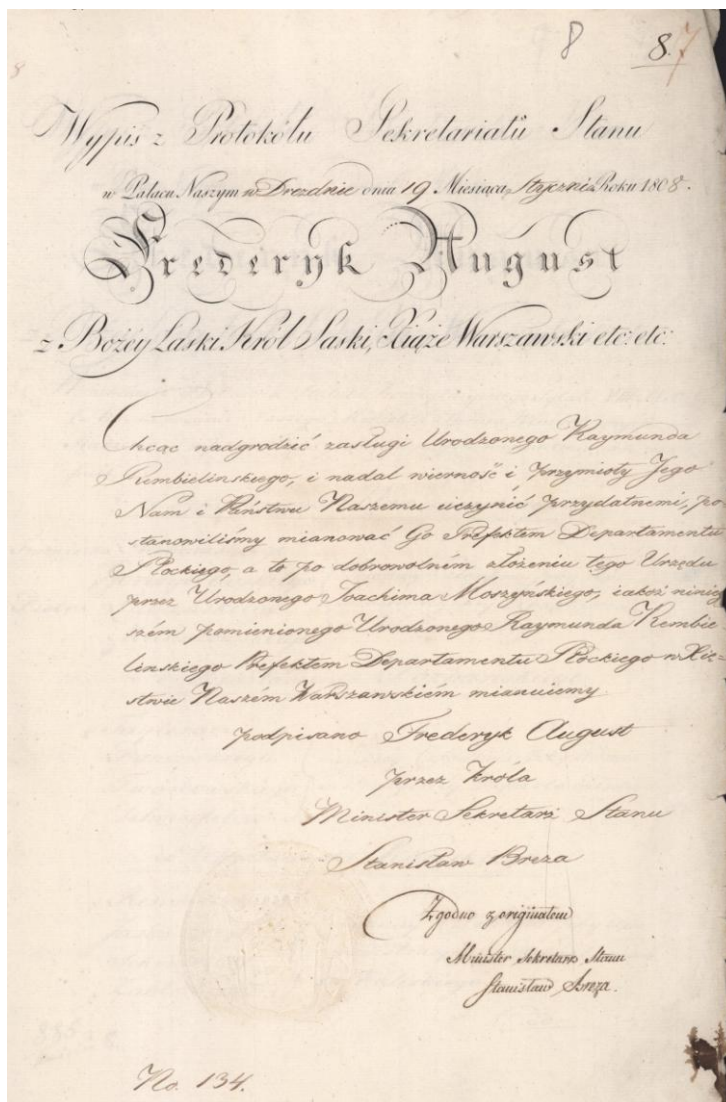 8 8. 7
8
Wypis z Protokółu Sekretariatu Stanu
w Pałacu Naszym w Dreznie dnia 19 Miesiąca Stycznia Roku 1808.
Frederyk August
z Bożéy Łaski Król Saski, Xiąże Warszawski etc: etc:
Chcąc nadgrodzić zasługi Urodzonego Raymunda
Rembielinskiego, i nadal wierność i przymioty Jego
Nam i Państwu Naszemu uczynić przydatnemi, po
stanowiliśmy mianować Go Prefektem Departamentu
Płockiego, a to po dobrowolném złożeniu tego Urzędu
przez Urodzonego Joachima Moszyńskiego, iakoż niniey
szém pomienionego Urodzonego Raymunda Rembie-
linskiego Prefektem Departamentu Płockiego w Xię-
stwie Naszém Warszawskiém mianuiemy.
podpisano Frederyk August
przez Króla
Minister Sekretarz Stanu
Stanisław Breza
Zgodno z originałem
Minister Sekretarz Stanu
Stanisław Breza.
No. 134.